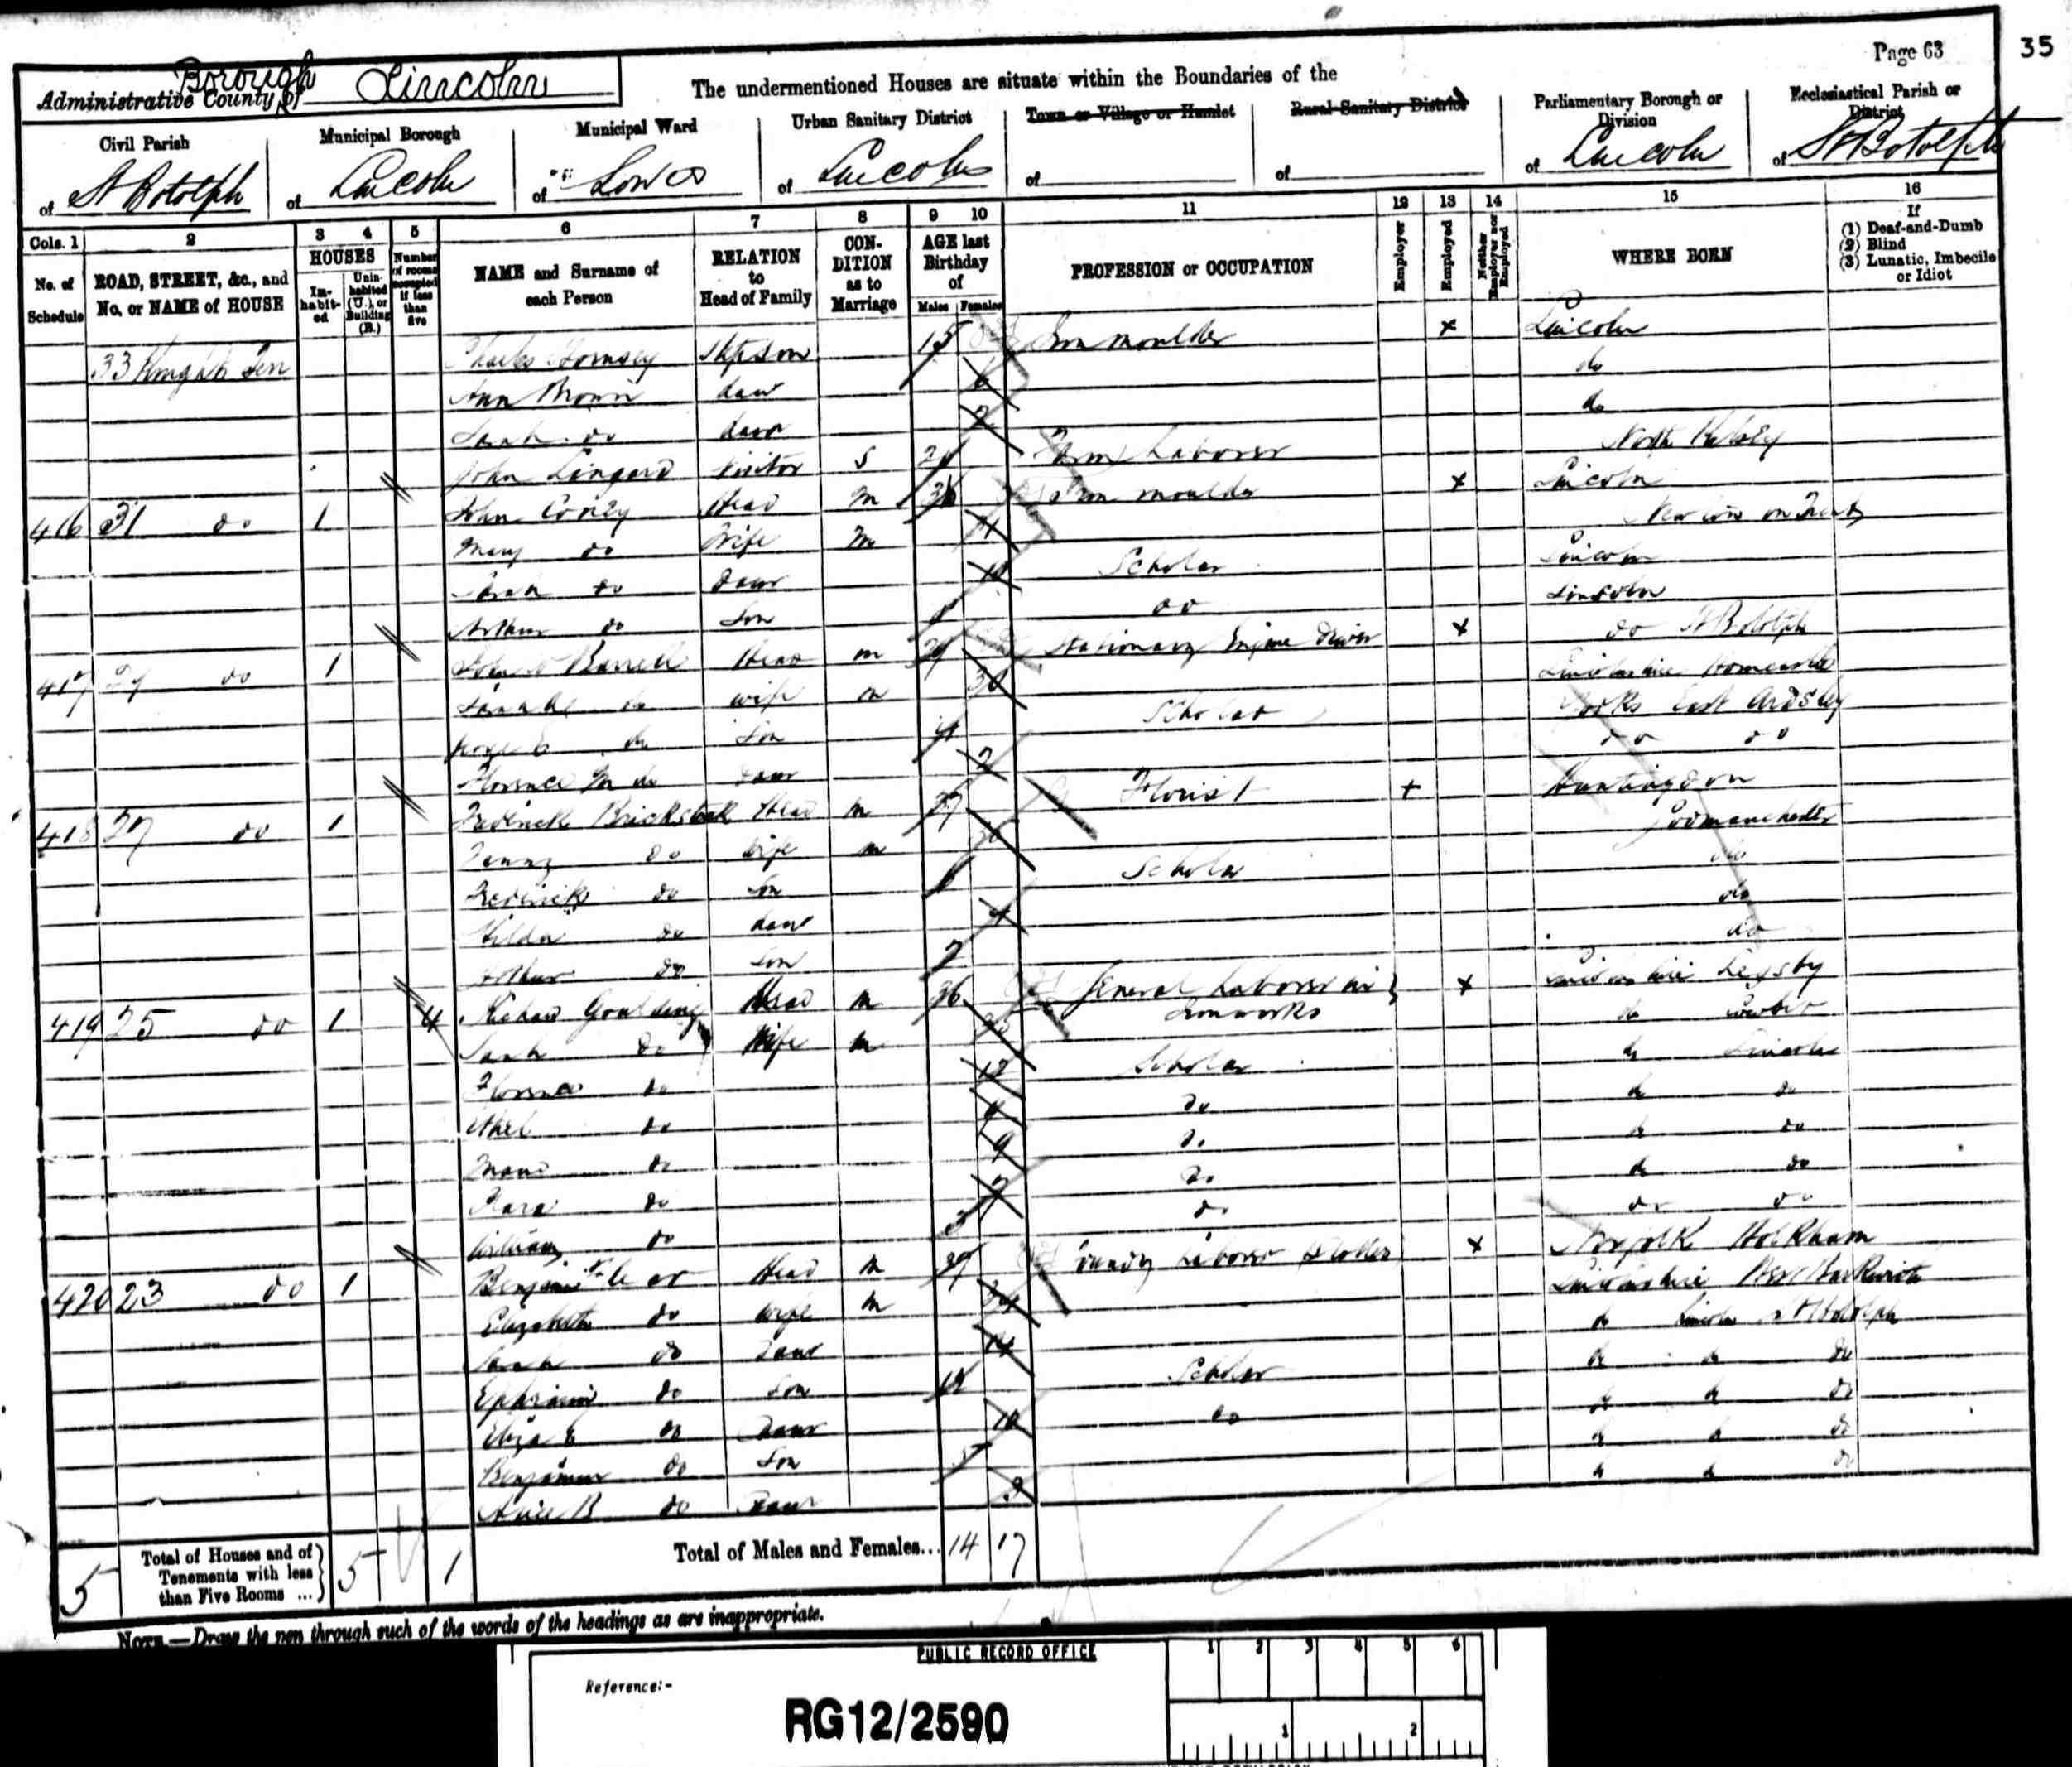 Page 63
35
Administrative County of Borough Lincoln
The undermentioned Houses are situate within the Boundaries of the
Civil Parish of St Botolph
Municipal Borough of Lincoln
Municipal Ward of Lower
Urban Sanitary District of Lincoln
Town or Village or Hamlet of
Rural Sanitary District of
Parliamentary Borough or Division of Lincoln
Ecclesiastical Parish or District of St Botolph
Cols. 1 2 3 4 5 6 7 8 9 10 11 12 13 14 15 16
No. of Schedule
ROAD, STREET, &c., and No. or NAME of HOUSE
HOUSES
Inhabited
Uninhabited (U.), or Building (B.)
Number of rooms occupied if less than five
NAME and Surname of each Person
RELATION to Head of Family
CONDITION as to Marriage
AGE last Birthday of
Males Females
PROFESSION or OCCUPATION
Employer
Employed
Neither Employer nor Employed
WHERE BORN
If
(1) Deaf-and-Dumb
(2) Blind
(3) Lunatic, Imbecile or Idiot
33 Knights Terr Charles Hornsey Stepson Iron moulder x Lincoln
Ann Brown daur 6 do
Sarah do daur 2 do
John Lingard Visitor S Farm Laborer North Kelsey
416 31 do 1 John Coney Head M 36 Iron moulder x Lincoln
Mary do Wife M Newton on Trent
Sarah do Daur Scholar Lincoln
Arthur do Son do Lincoln
417 29 do 1 John W Barrell Head M 29 Stationary Engine Driver x do St Botolph
Sarah do wife M 30 Lincolnshire Horncastle
George E do Son 4 Scholar Yorks East Ardsley
Florence M do Daur 2 do do
418 27 do 1 Frederick Brickstock Head M 37 Florist + Huntingdon
Fanny do Wife M Godmanchester
Frederick do Son Scholar do
Hilda do daur 4 do
Arthur do Son 2 do
419 25 do 1 4 Richard Goulding Head M 36 General Laborer in Ironworks x Lincolnshire Legsby
Sarah do Wife M do
Florence do 12 Scholar do Lincoln
Ethel do do do do
Maud do 9 do do do
Clara do 7 do do do
William do 3 do do do
420 23 do 1 Benjamin Head M 39 Laborer x Norfolk Holkham
Elizabeth do Wife M 34 Lincolnshire West Barkwith
Sarah do Daur 14 do Lincoln St Botolph
Ephraim do Son Scholar do do do
Eliza E do Daur 10 do do do do
Benjamin do Son 5 do do do
Alice B do Daur 3 do do do
5
Total of Houses and of Tenements with less than Five Rooms ...
5 1
Total of Males and Females... 14 17
NOTE.—Draw the pen through such of the words of the headings as are inappropriate.
PUBLIC RECORD OFFICE
1 2 3 4 5 6
Reference:-
RG12/2590
1 2